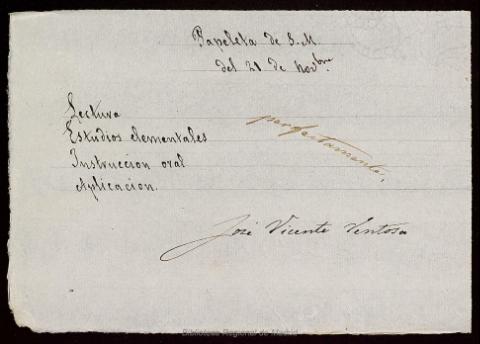 Papeleta de S. M.
del 21 de Novbre.
Lectura
Estudios elementales
Instruccion oral
Aplicacion.
perfectamente.
José Vicente Ventosa
Biblioteca Regional de Madrid